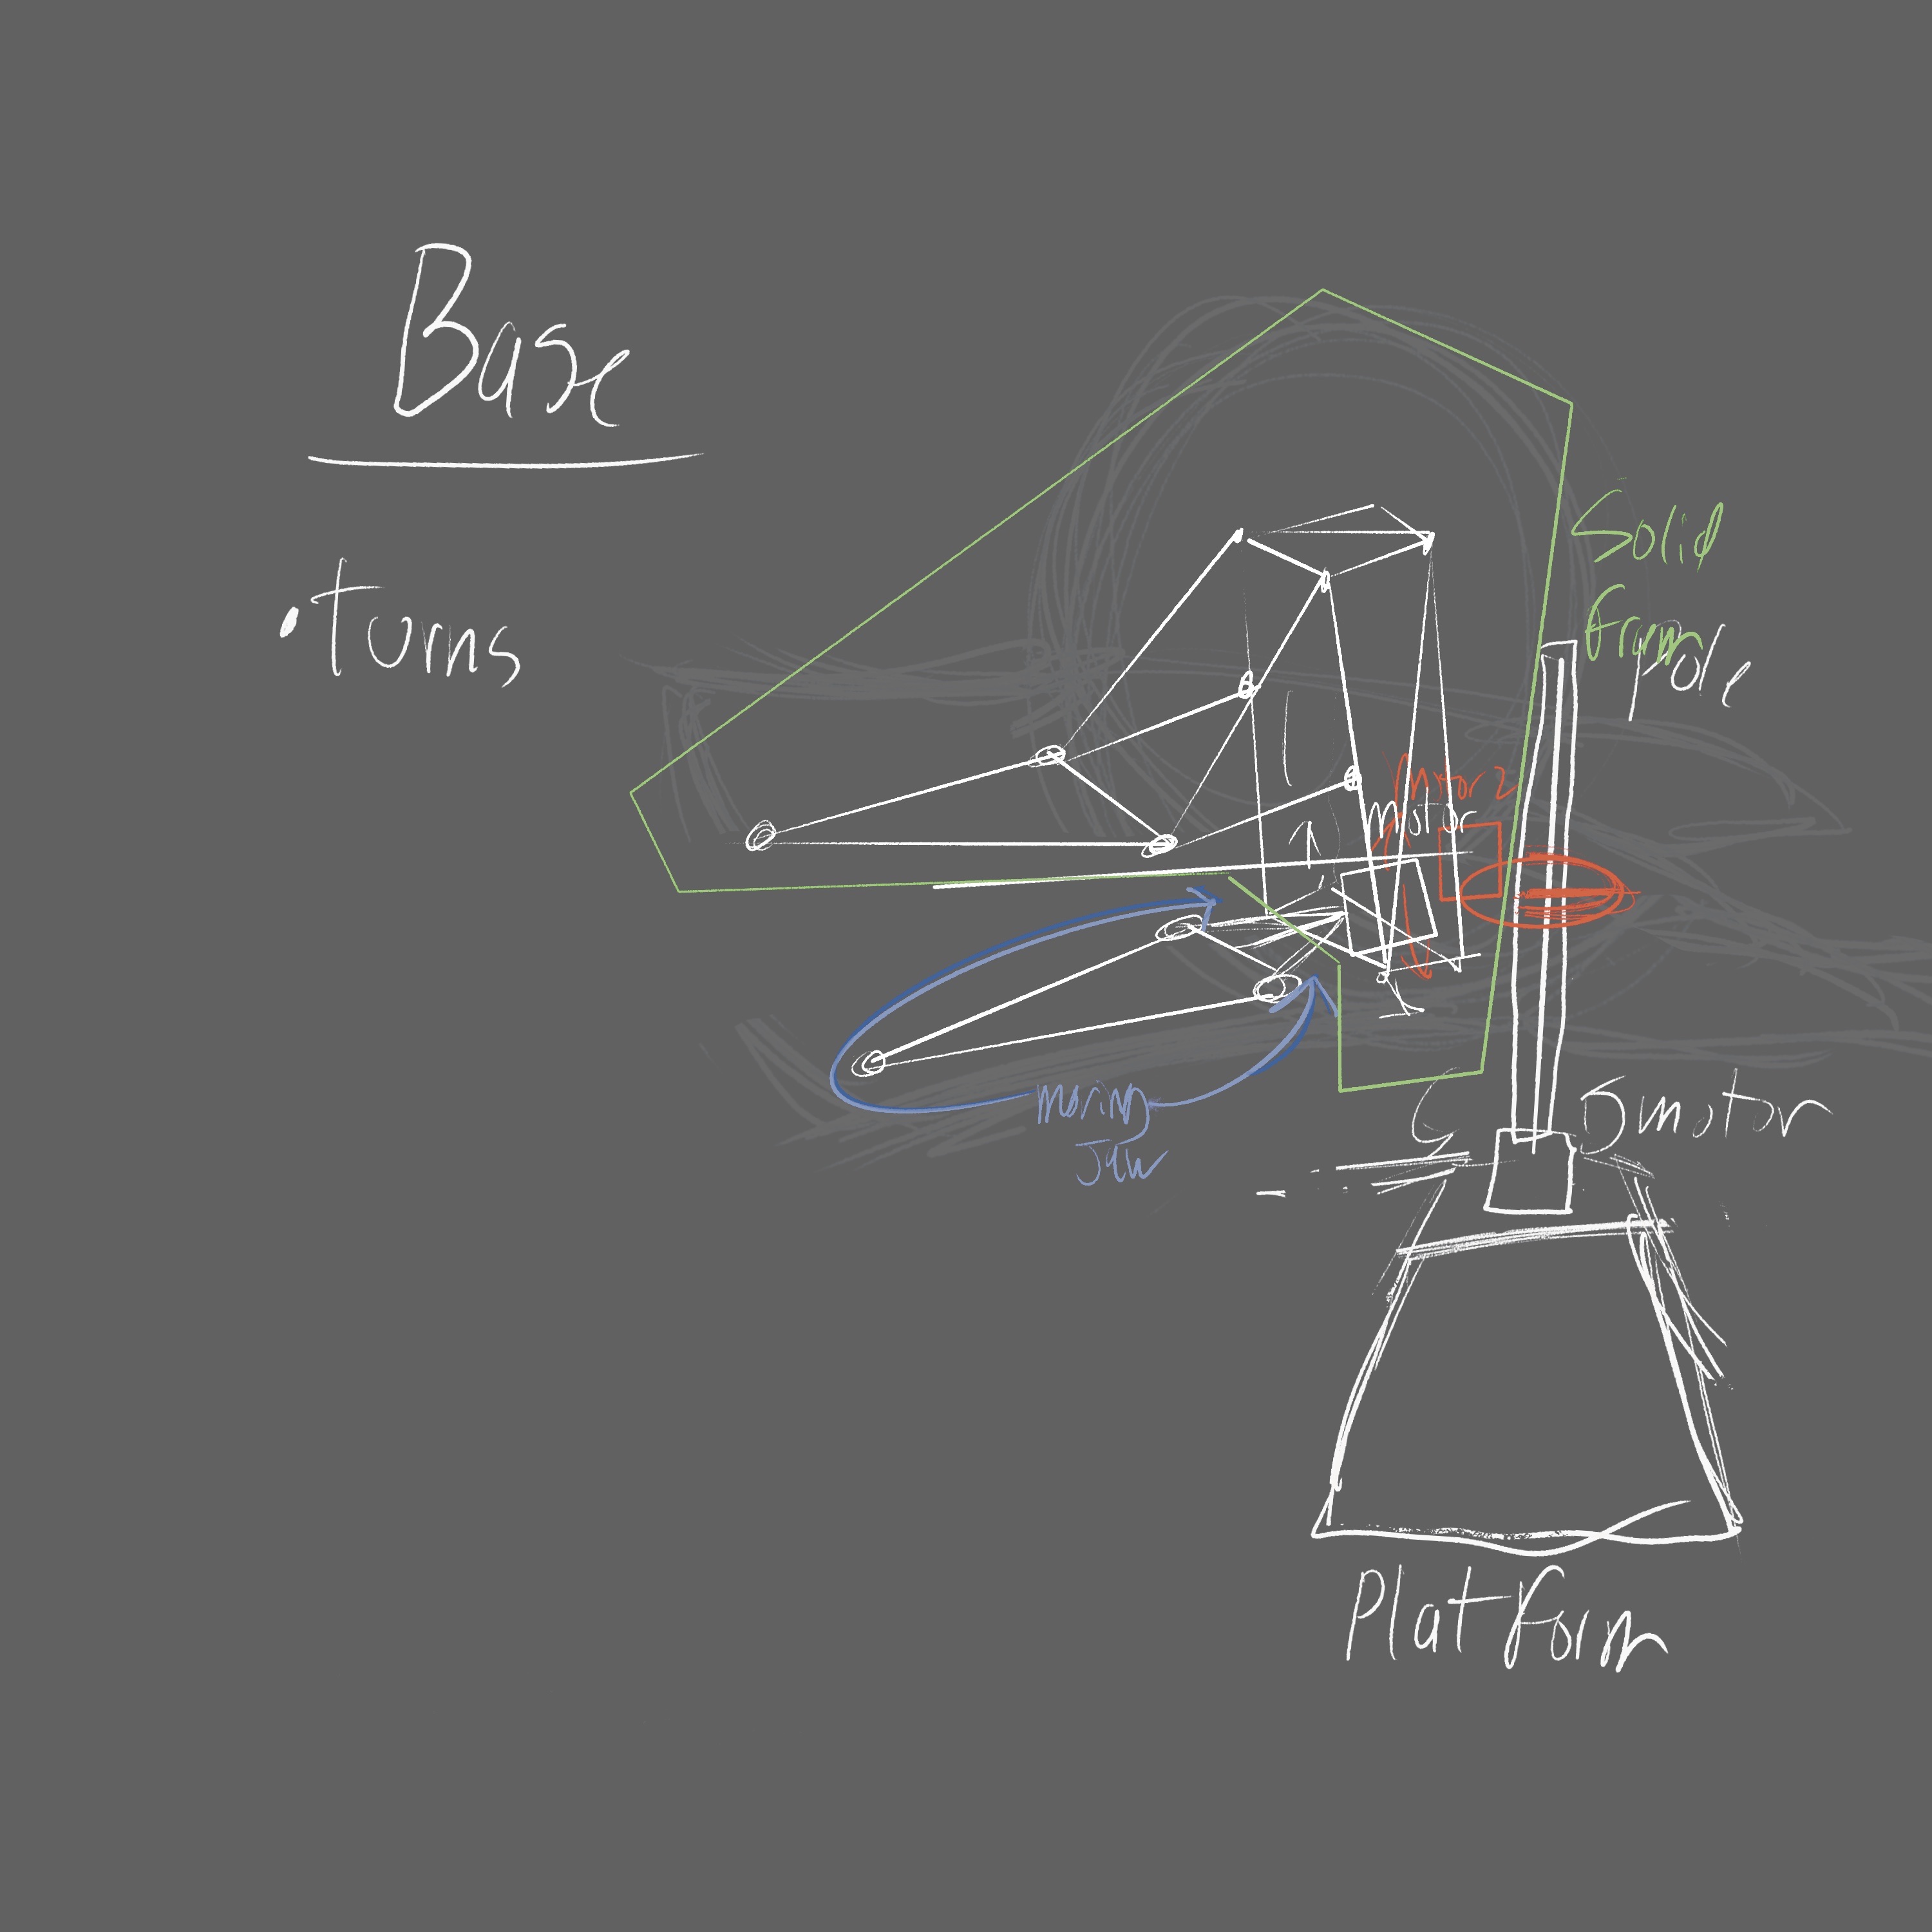 Base
• turns
Solid
Fram
Pole
Motor 2
motor
moving
Jaw
motor
Platform